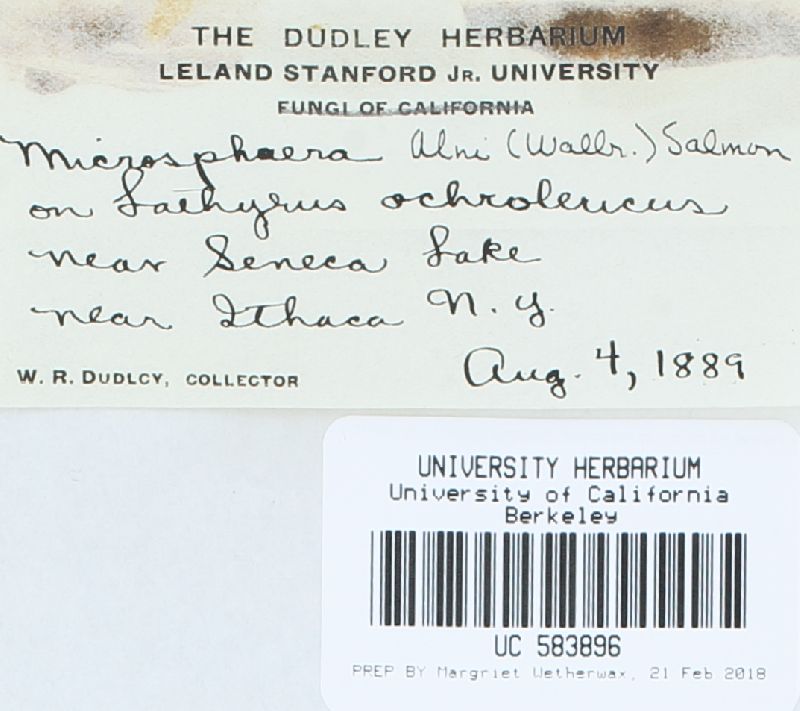 THE DUDLEY HERBARIUM
LELAND STANFORD JR. UNIVERSITY
FUNGI OF CALIFORNIA
Microsphaera Alni (Wallr.) Salmon
on Lathyrus ochroleucus
near Seneca Lake
near Ithaca N. Y.
Aug. 4, 1889
W. R. DUDLEY, COLLECTOR
UNIVERSITY HERBARIUM
University of California
Berkeley
UC 583896
PREP BY Margriet Wetherwax, 21 Feb 2018